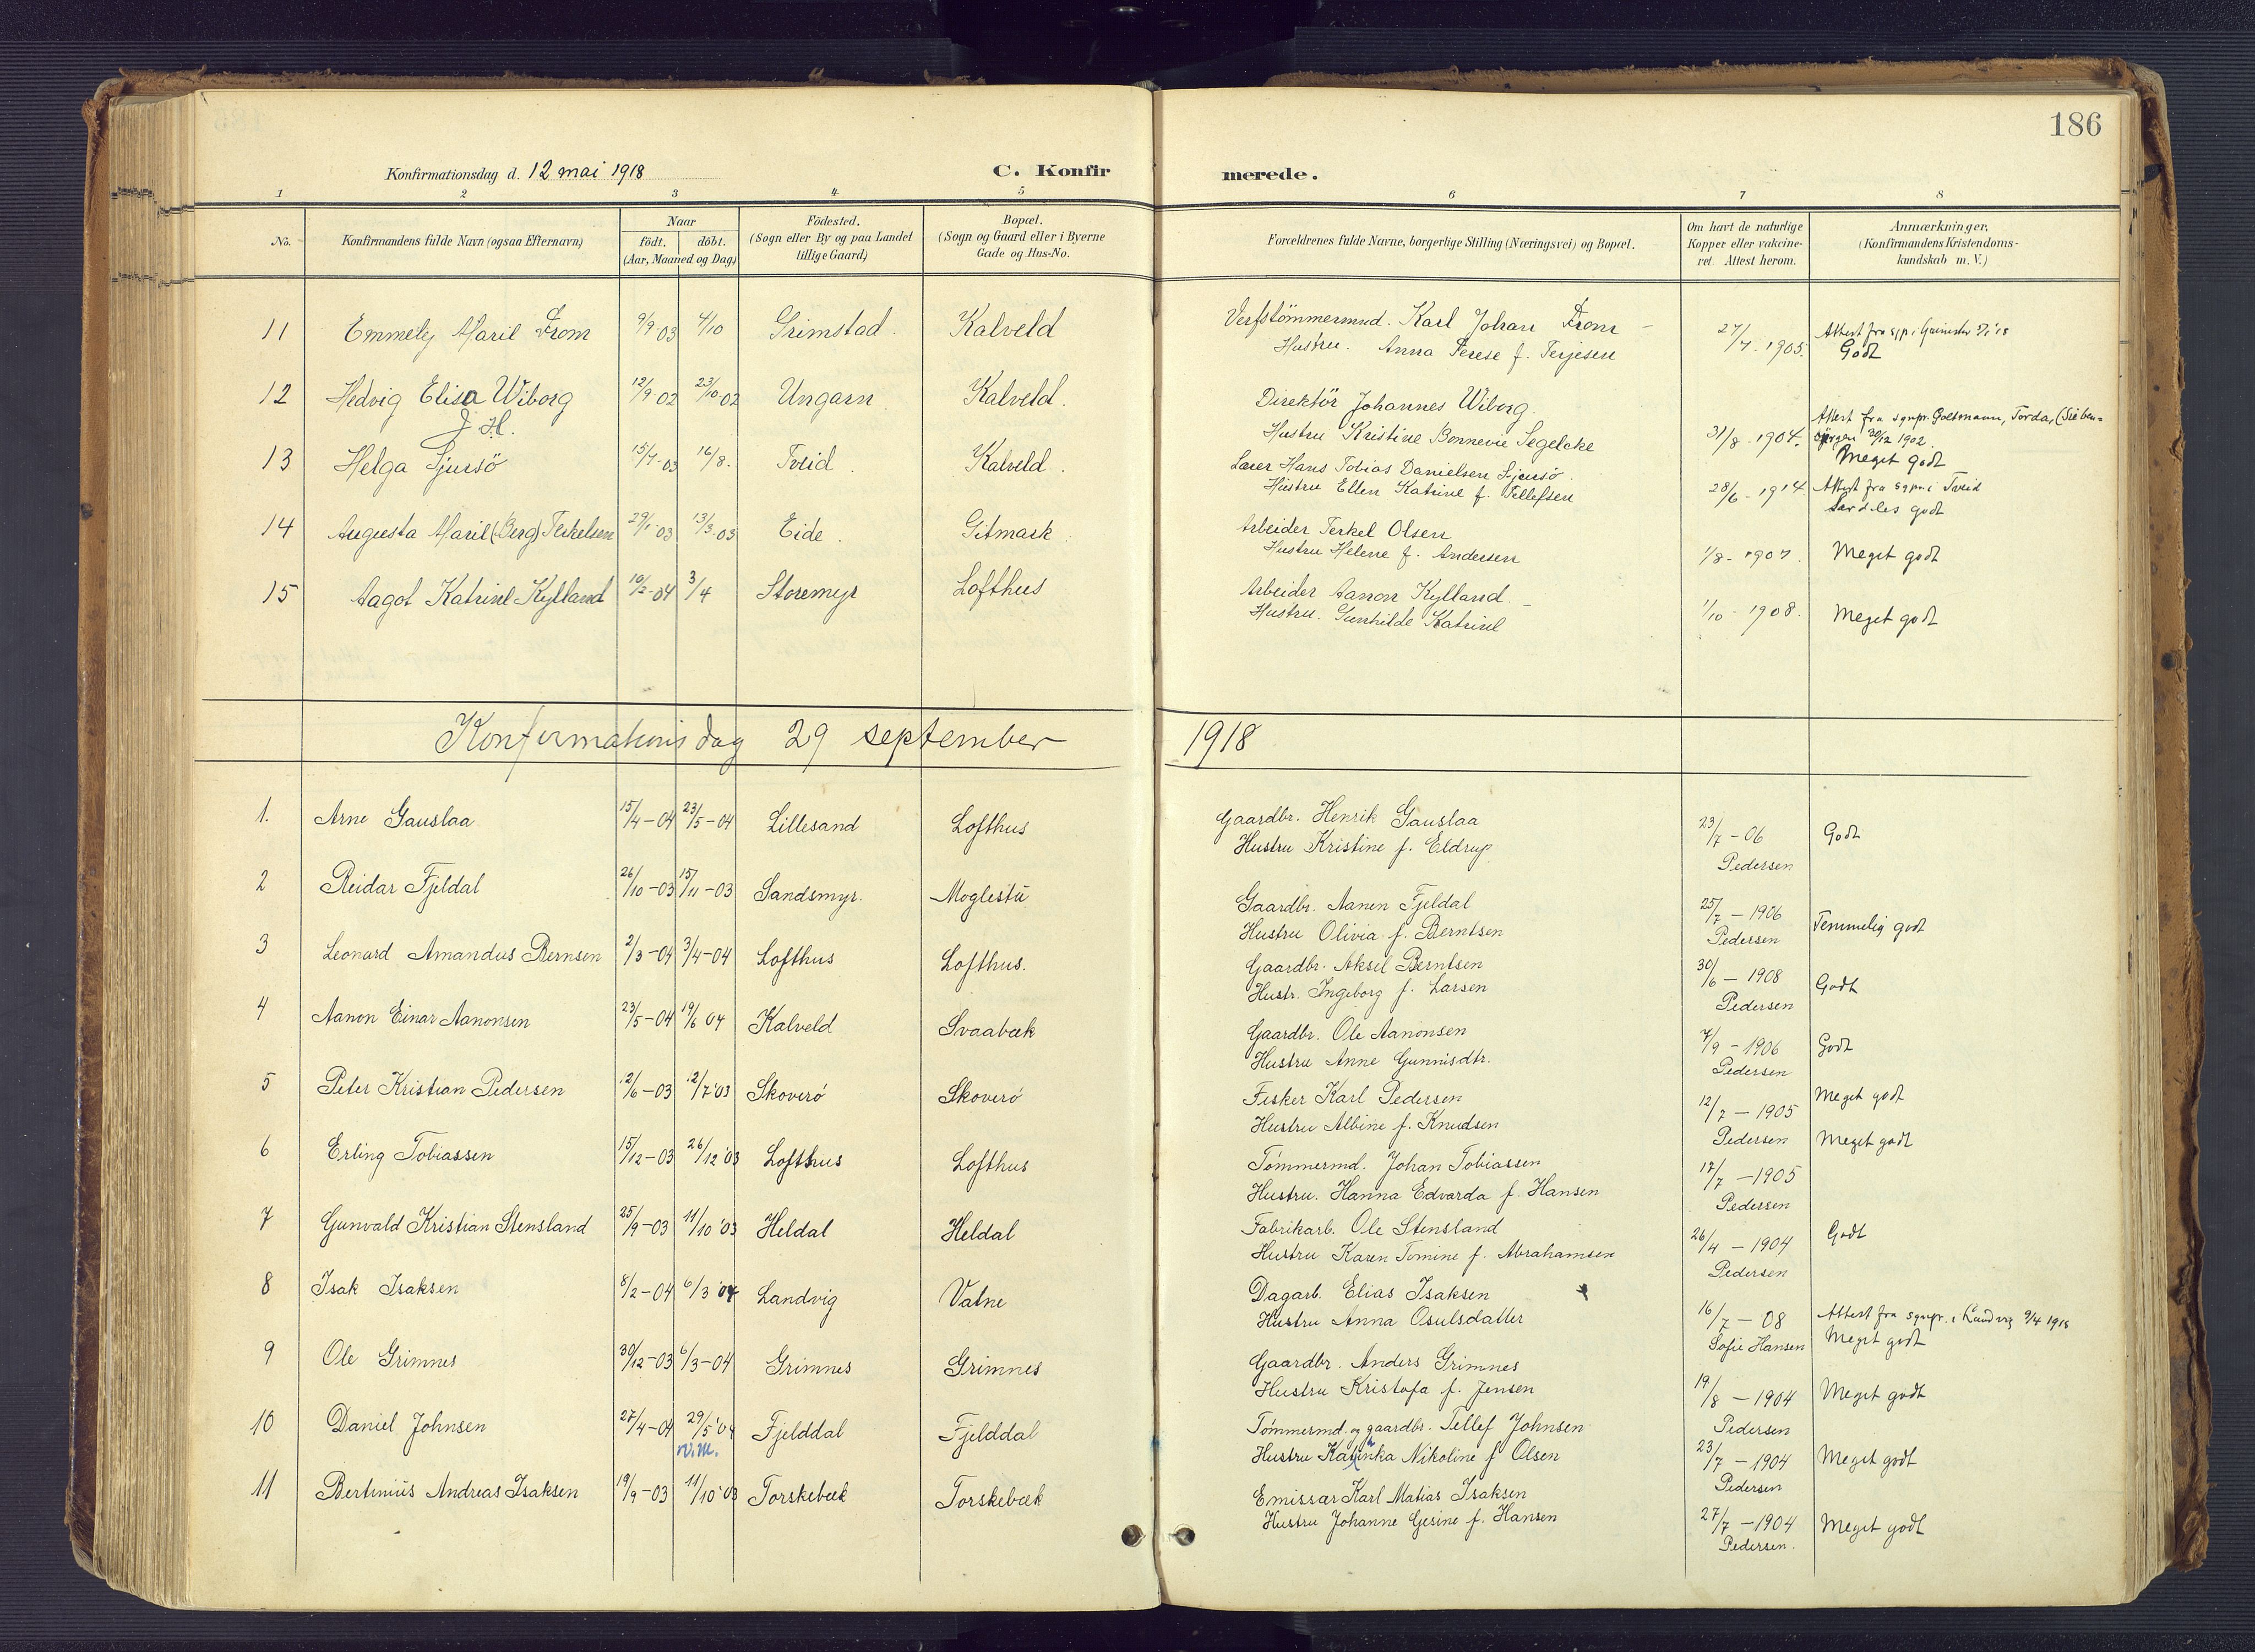 186
Konfirmationsdag d. 12 mai 1918
C. Konfirmerede.
1 2 3 4 5 6 7 8
No.
Konfirmandens fulde Navn (ogsaa Efternavn)
Naar
födt. döbt.
(Aar, Maaned og Dag)
Födested.
(Sogn eller By og paa Landet
tillige Gaard)
Bopæl.
(Sogn og Gaard eller i Byerne
Gade og Hus-No.
Forældrenes fulde Navne, borgerlige Stilling (Næringsvei) og Bopæl.
Om havt de naturlige
Kopper eller vakcine-
ret. Attest herom.
Anmærkninger.
(Konfirmandens Kristendoms-
kundskab m. V.)
11 Emmely Maril From 9/9-03 4/10 Grimstad Kalveld Verftömmermnd. Karl Johan From
Hustru. Anna Terese f. Terjesen 27/7-1905. Godt
12 Hedvig Elisa Wiborg 12/9 02 23/10-02 Ungarn Kalveld. Direktör Johannes Wiborg
J. H.
Hustru Kristine Bonnevie Segelcke 31/8-1904. Attest fra sgnpr. Goltsmann, Torda, (Sieben-
bürgen 30/12 1902.
Meget godt
13 Helga Sjursö 15/7-03 16/8. Tveid. Kalveld. Lærer Hans Tobias Danielsen Sjursö.
Hustru Ellen Katrine f. Tellefsen 28/6-1914. Attest fra sgnpr. i Tveid
Særdeles godt
14 Augusta Maril (Berg) Terkelsen 29/1-03 13/3.03 Eide. Gitmark. Arbeider Terkel Olsen
Hustru Helene f. Andersen 1/8-1907. Meget godt
15 Aagot Katrinl Kylland 10/2-04 3/4 Storemyr Lofthus Arbeider Aanon Kylland.
Hustru. Gunhilde Katrinl 1/10-1908. Meget godt
Konfirmationsdag 29 september 1918
1. Arne Gauslaa 15/4-04 23/5-04 Lillesand Lofthus Gaardbr. Henrik Gauslaa
Hustru Kristine f. Eldrup 23/7-06 Godt
Pedersen
2 Reidar Fjeldal 26/10-03 15/11-03 Sandsmyr. Moglestu Gaardbr. Aanen Fjeldal
Hustru Olivia f. Berntsen 25/7-1906 Temmelig godt
Pedersen
3 Leonard Amandus Bernsen 2/3-04 3/4-04 Lofthus Lofthus. Gaardbr. Aksel Berntsen
Hustr. Ingeborg f. Larsen 30/6-1908 Godt
Pedersen
4 Aanon Einar Aanonsen 23/5-04 19/6 04 Kalveld Svaabæk Gaardbr. Ole Aanonsen
Hustru Anne Gunnisdtr. 7/9-1906 Godt
Pedersen
5 Peter Kristian Pedersen 12/6-03 12/7'03 Skoverö Skoverö Fisker Karl Pedersen
Hustru Albine f. Knudsen 12/7-1905 Meget godt
Pedersen
6 Erling Tobiassen 15/12-03 26/12'03 Lofthus Lofthus Tömmermd. Johan Tobiassen
Hustru. Hanna Edvarda f. Hansen 17/7-1905 Meget godt
Pedersen
7 Gunvald Kristian Stensland 25/9-03 11/10'03 Heldal Heldal Fabrikarb. Ole Stensland
Hustru Karen Tomine f. Abrahamsen 26/4-1904 Godt
Pedersen
8 Isak Isaksen 8/2-04 6/3'04 Landvig Vatne Dagarb. Elias Isaksen
Hustru Anna Osulsdatter 16/7-08 Attest fra sgnpr. i Landvig 9/4 1918
Sofie Hansen Meget godt
9 Ole Grimnes 30/12-03 6/3-04 Grimnes Grimnes Gaardbr. Anders Grimnes
Hustru Kristofa f. Jensen 19/8-1904 Meget godt
Pedersen
10 Daniel Johnsen 27/4-04 29/5'04 Fjelddal Fjelddal Tömmermd. og gaardbr. Tellef Johnsen
v.m.
Hustru Katinka Nikoline f Olsen 23/7-1904 Meget godt
Pedersen
11 Bertinius Andreas Isaksen 19/9-03 11/10'03 Torskebæk Torskebæk Emissær Karl Matias Isaksen
Hustru Johanne Gesine f. Hansen 27/7-1904 Meget godt
Pedersen.